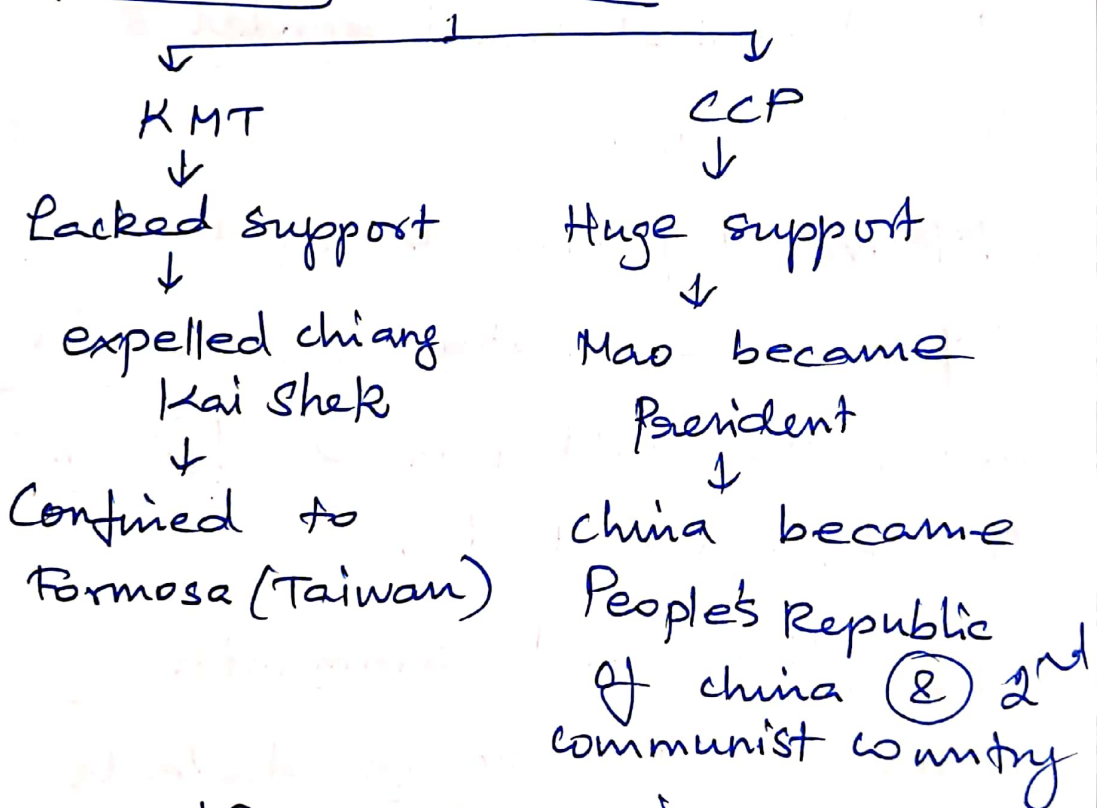 KMT
Lacked support
expelled chiang
Kai Shek
Confined to
Formosa (Taiwan)
CCP
Huge support
Mao became
President
china became
People's Republic
of china & 2nd
communist country